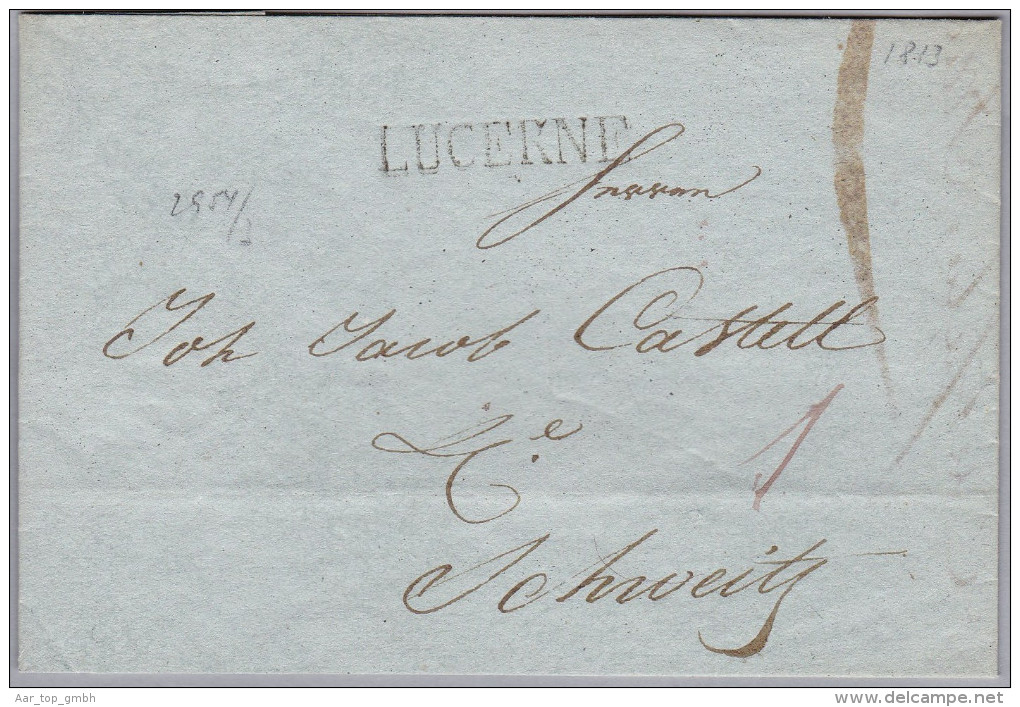 1813
LUCERNE
Herren
2954/3
Joh Jacob Castell
1
Schweitz
Aar_top_gmbh
www.delcampe.net